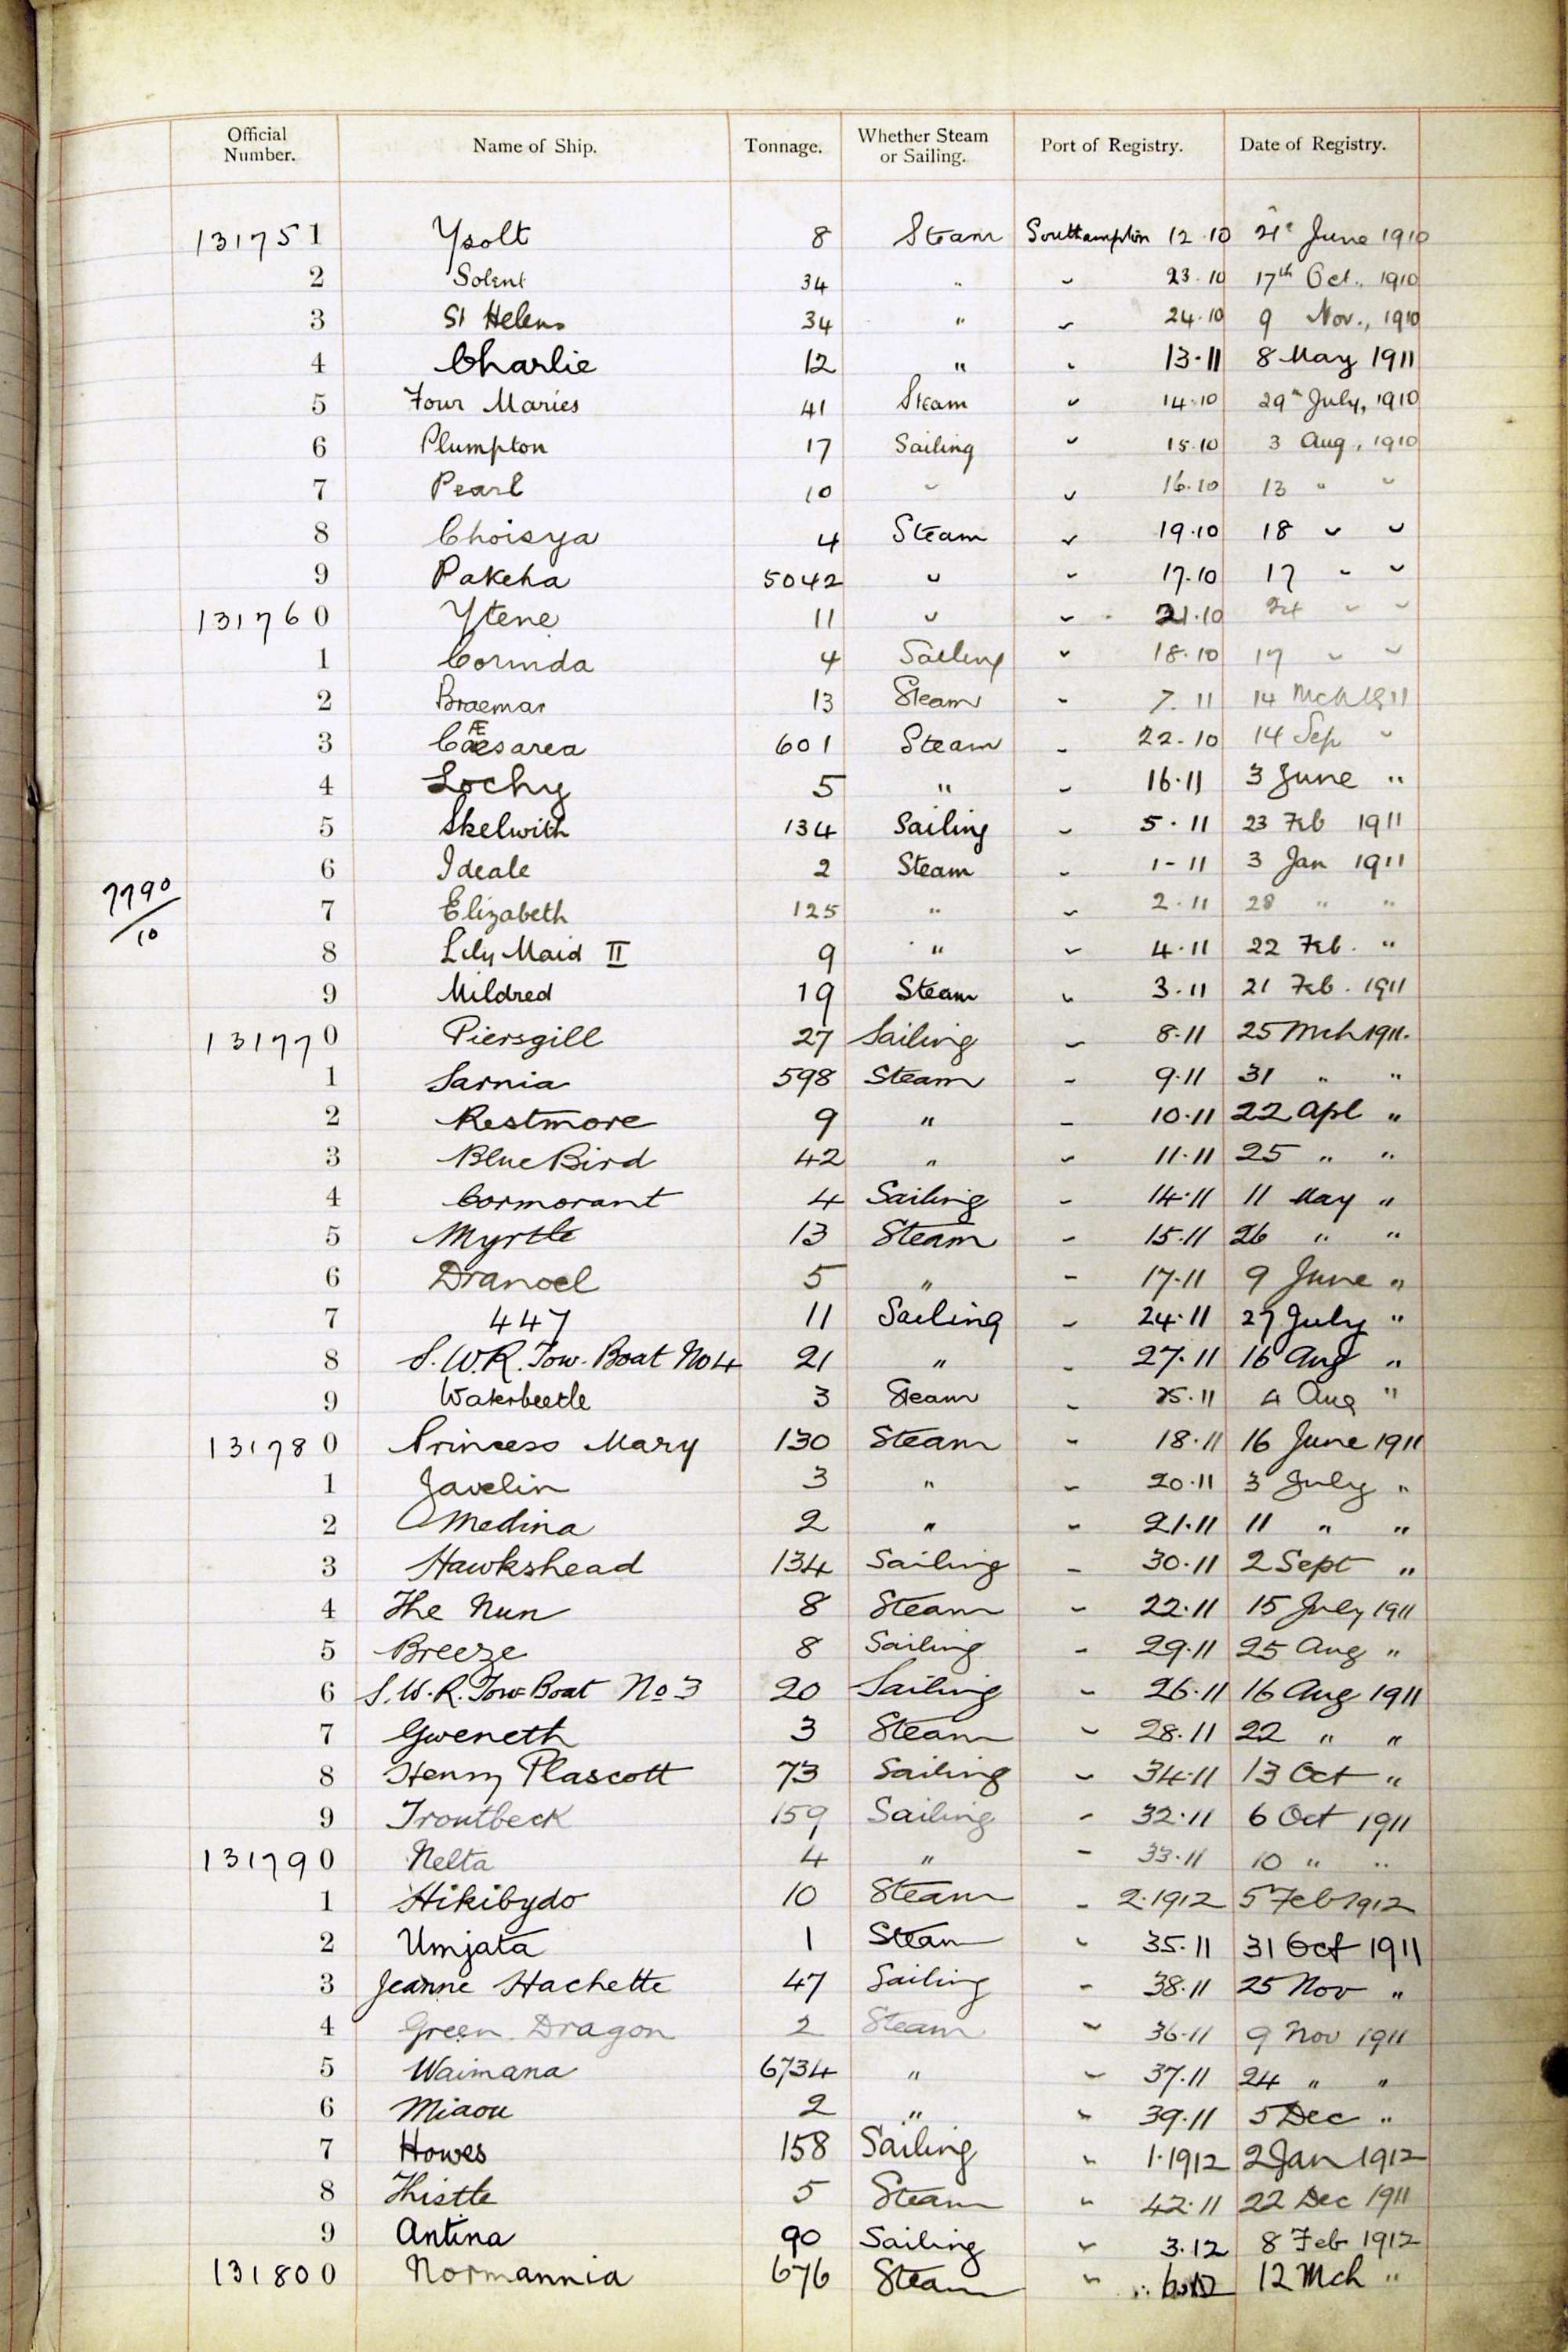 Official Number. Name of Ship. Tonnage. Whether Steam or Sailing. Port of Registry. Date of Registry.
131751 Ysolt 8 Steam Southampton 12.10 21st June 1910
2 Solent 34 " " 23.10 17th Oct., 1910
3 St Helens 34 " " 24.10 9 Nov., 1910
4 Charlie 12 " " 13.11 8 May 1911
5 Four Maries 41 Steam " 14.10 29th July, 1910
6 Plumpton 17 Sailing " 15.10 3 Aug, 1910
7 Pearl 10 " " 16.10 13 " "
8 Choisya 4 Steam " 19.10 18 " "
9 Pakeha 5042 " " 17.10 17 " "
131760 Ytene 11 " " 21.10 24 " "
1 Corinda 4 Sailing " 18.10 17 " "
2 Braemar 13 Steam " 7.11 14 Mch 1911
3 Cæsarea 601 Steam " 22.10 14 Sep "
4 Lochy 5 " " 16.11 3 June "
5 Skelwith 134 Sailing " 5.11 23 Feb 1911
6 Ideale 2 Steam " 1-11 3 Jan 1911
7790/10
7 Elizabeth 125 " " 2.11 28 " "
8 Lily Maid II 9 " " 4.11 22 Feb. "
9 Mildred 19 Steam " 3.11 21 Feb. 1911
131770 Piersgill 27 Sailing " 8.11 25 Mch 1911.
1 Sarnia 598 Steam " 9.11 31 " "
2 Restmore 9 " " 10.11 22 Apl "
3 Blue Bird 42 " " 11.11 25 " "
4 Cormorant 4 Sailing " 14.11 11 May "
5 Myrtle 13 Steam " 15.11 26 " "
6 Dranoel 5 " " 17.11 9 June "
7 447 11 Sailing " 24.11 27 July "
8 S.W.R. Tow. Boat No 4 21 " " 27.11 16 Aug "
9 Waterbeetle 3 Steam " 25.11 4 Aug "
131780 Princess Mary 130 Steam " 18.11 16 June 1911
1 Javelin 3 " " 20.11 3 July "
2 Medina 2 " " 21.11 11 " "
3 Hawkshead 134 Sailing " 30.11 2 Sept "
4 The Nun 8 Steam " 22.11 15 July 1911
5 Breeze 8 Sailing " 29.11 25 Aug "
6 S.W.R. Tow Boat No 3 20 Sailing " 26.11 16 Aug 1911
7 Gweneth 3 Steam " 28.11 22 " "
8 Henry Plascott 73 Sailing " 34.11 13 Oct "
9 Troutbeck 159 Sailing " 32.11 6 Oct 1911
131790 Nelta 4 " " 33.11 10 " "
1 Hikibydo 10 Steam " 2.1912 5 Feb 1912
2 Umjata 1 Steam " 35.11 31 Oct 1911
3 Jeanne Hachette 47 Sailing " 38.11 25 Nov "
4 Green Dragon 2 Steam " 36.11 9 Nov 1911
5 Waimana 6734 " " 37.11 24 " "
6 Miaou 2 " " 39.11 5 Dec "
7 Howes 158 Sailing " 1.1912 2 Jan 1912
8 Thistle 5 Steam " 42.11 22 Dec 1911
9 Antina 90 Sailing " 3.12 8 Feb 1912
131800 Normannia 676 Steam " 12 Mch "